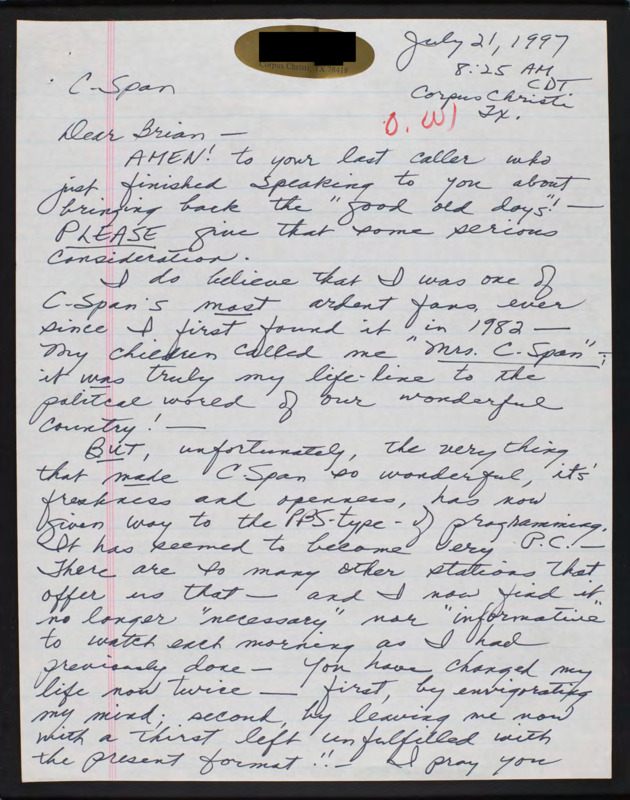 Corpus Christi, TX 78418
July 21, 1997
8:25 AM
CDT
C-Span
Corpus Christi
Tx.
Dear Brian —
AMEN! to your last caller who
just finished speaking to you about
bringing back the "good old days"! —
PLEASE give that some serious
consideration.
I do believe that I was one of
C-Span's most ardent fans, ever
since I first found it in 1982 —
My children called me "Mrs. C-Span";
it was truly my life-line to the
politcal world of our wonderful
Country! —
BUT, unfortunately, the very thing
that made C-Span so wonderful, it's
freshness and openness, has now
given way to the PBS-type - of programming.
It has seemed to become very P.C.! —
There are so many other stations that
offer us that — and I now find it
no longer "necessary" nor "informative"
to watch each morning as I had
previously done — You have changed my
life now twice — first, by envigorating
my mind; second, by leaving me now
with a thirst left unfulfilled with
the present format!! — I pray you